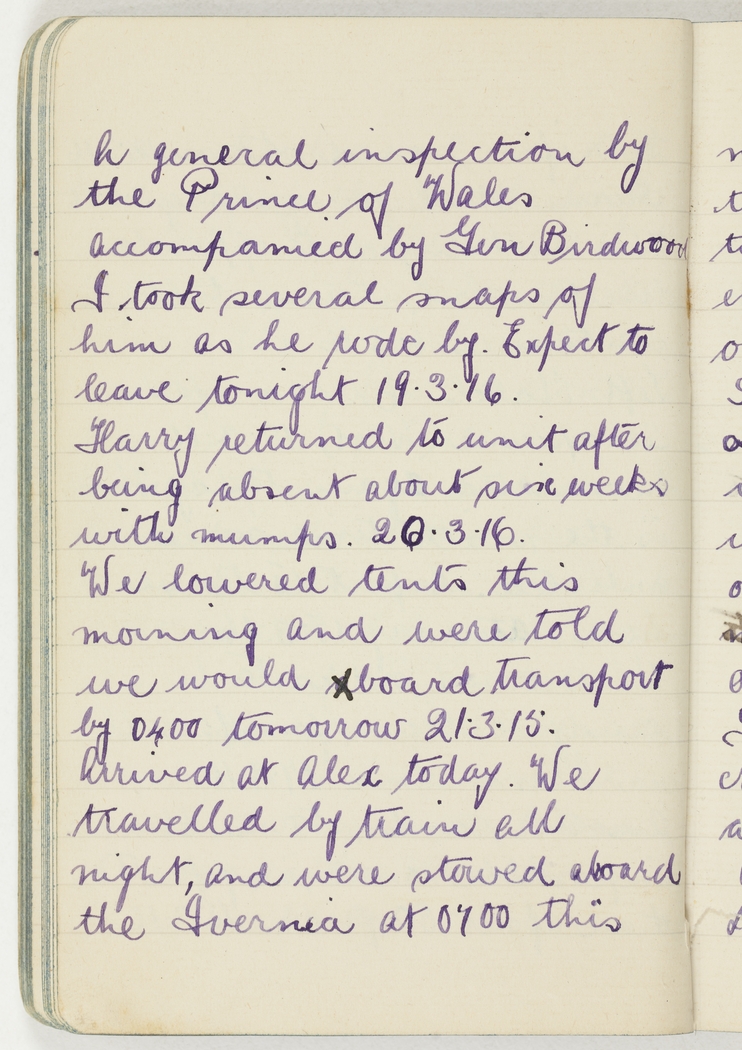 A general inspection by
the Prince of Wales
accompanied by Gen Birdwood
I took several snaps of
him as he rode by. Expect to
leave tonight 19.3.16.
Harry returned to unit after
being absent about six weeks
with mumps. 20.3.16.
We lowered tents this
morning and were told
we would board transport
by 0400 tomorrow 21.3.15.
Arrived at Alex today. We
travelled by train all
night, and were stowed aboard
the Ivernia at 0700 this